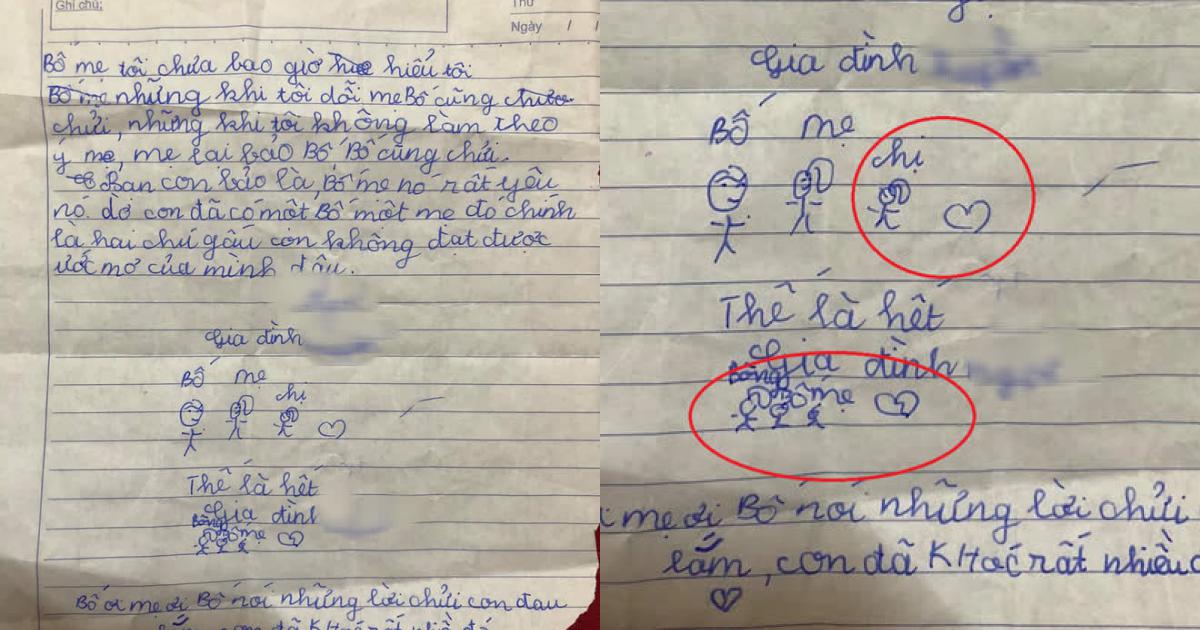 Ghi chú:
Thứ
Ngày / /
Bố mẹ tôi chưa bao giờ hiểu tôi
Bố mẹ những khi tôi dỗi mẹ Bố cũng
chửi, những khi tôi không làm theo
ý mẹ, mẹ lại bảo Bố Bố cũng chửi.
Bạn con bảo là, Bố mẹ nó rất yêu
nó. dờ con đã có một Bố một mẹ đó chính
là hai chú gấu con không đạt được
ước mơ của mình đâu.
Gia đình
Bố mẹ
chị
Thế là hết
Gia đình
Bố mẹ
Bố ơi mẹ ơi Bố nói những lời chửi con đau
lắm, con đã KHóc rất nhiề
Gia đình
Bố mẹ
chị
Thế là hết
Gia đình
Bố mẹ
i mẹ ơi Bố nói những lời chửi
lắm, con đã KHóc rất nhiều